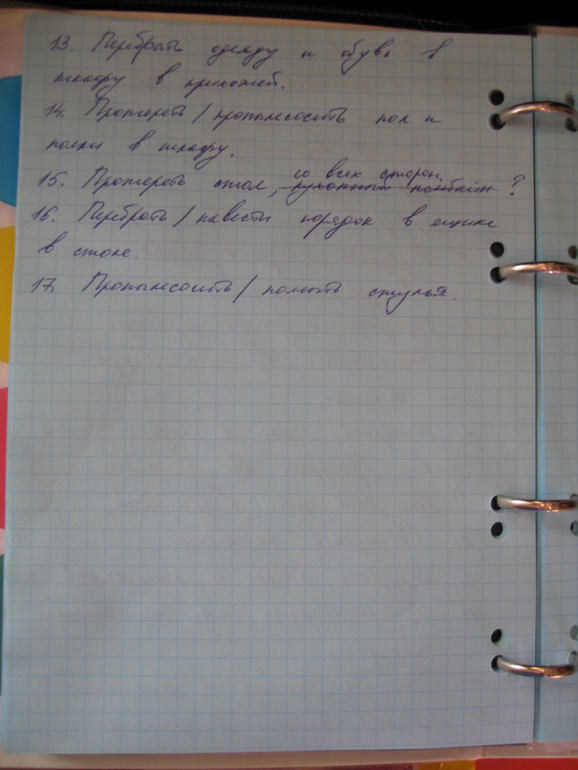 13. Перебрать одежду и обувь в
шкафу в прихожей.
14. Протереть/пропылесосить пол и
полки в шкафу.
со всех сторон.
15. Протереть стол, кухонный комбайн?
16. Перебрать/навести порядок в ящике
в столе.
17. Пропылесосить/помыть стулья.